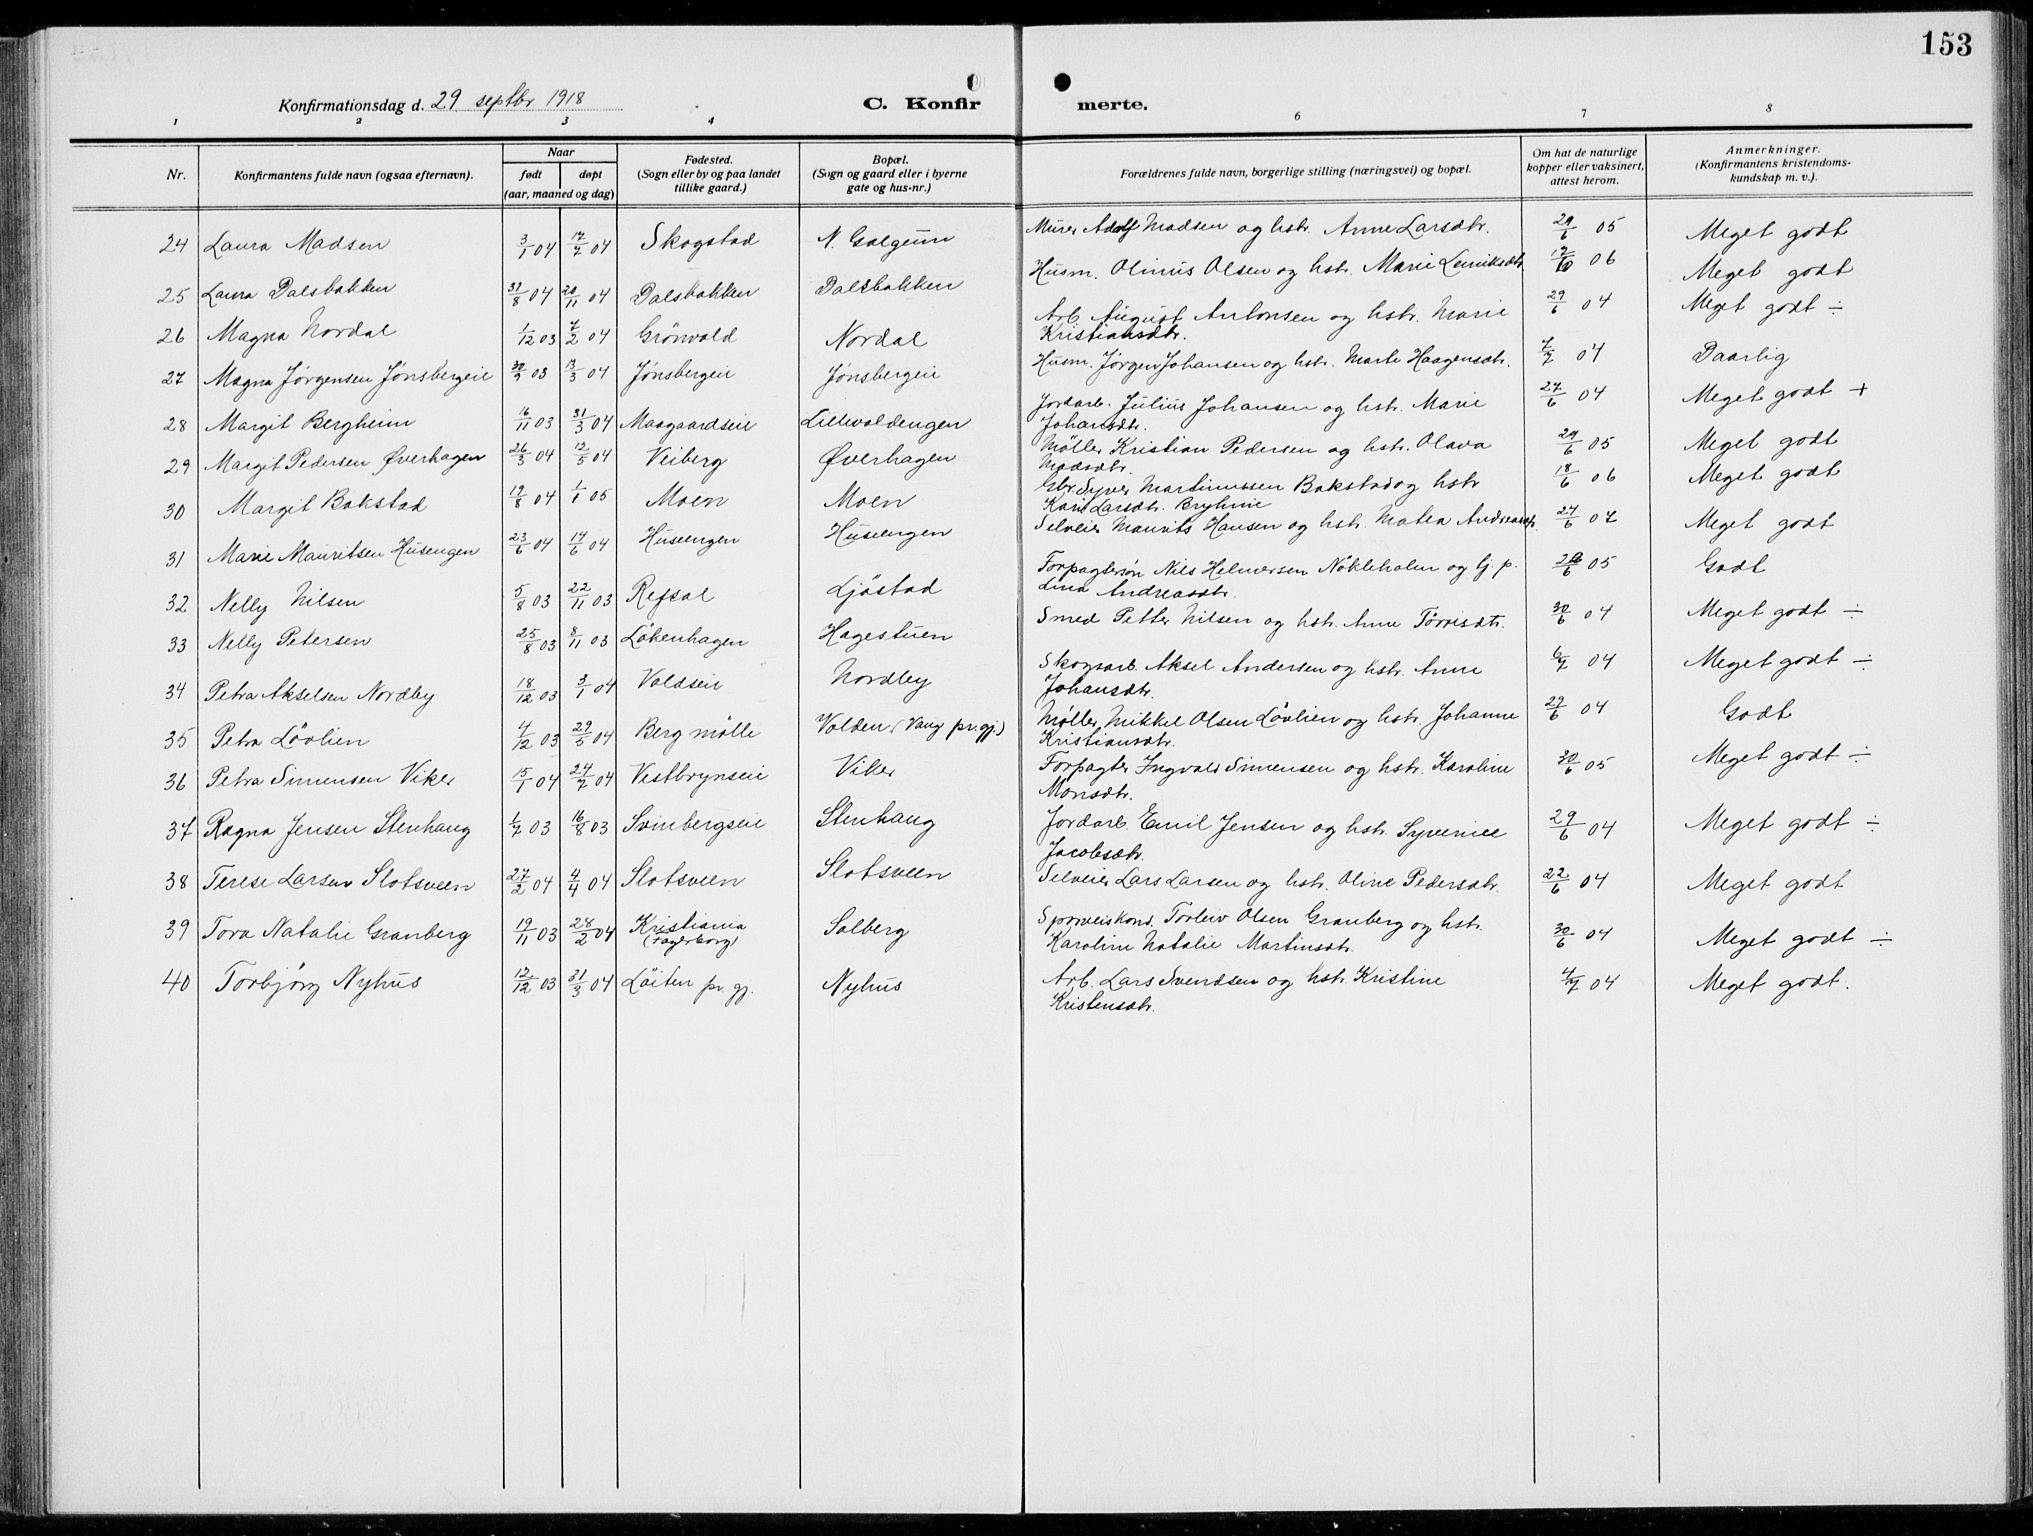 153
Konfirmationsdag d. 29 septbr 1918 C. Konfir merte.
1 2 3 4 6 7 8
Nr. Konfirmantens fulde navn (ogsaa efternavn). Naar født døpt (aar, maaned og dag) Fødested. (Sogn eller by og paa landet tillike gaard.) Bopæl. (Sogn og gaard eller i byerne gate og hus-nr.) Forældrenes fulde navn, borgerlige stilling (næringsvei) og bopæl. Om hat de naturlige kopper eller vaksinert, attest herom. Anmerkninger. (Konfirmantens kristendoms-kundskap m. v.).
24 Laura Madsen 3/1 04 17/7 04 Skogstad N. Galgeum Murer Adolf Madsen og hstr. Anne Larsdtr. 29/6 05 Meget godt
25 Laura Dalsbakken 31/8 04 20/11 04 Dalsbakken Dalsbakken Husm. Olinus Olsen og hstr. Marie 06 Meget godt
26 Magna Nordal 1/12 03 7/2 04 Grönvold Nordal Arb. August Antonsen og hstr. Marie 29/6 04 Meget godt ÷
Kristiansdtr.
27 Magna Jørgensen Jønsbergeie 30/9 03 13/3 04 Jønsbergeie Jønsbergeie Husm. Jørgen Johansen og hstr. Marte Haagensdtr. 7/7 04 Daarlig
28 Margit Bergheim 16/11 03 31/3 04 Maagaardseie Lillevoldengen Jordarb. Julius Johansen og hstr. Marie 27/6 04 Meget godt +
Johansdtr.
29 Margit Pedersen Øverhagen 26/3 04 12/5 04 Veiberg Øverhagen Møller Kristian Pedersen og hstr. Olava 29/6 05 Meget godt
Madsdtr.
30 Margit Bakstad 19/8 04 1/1 05 Moen Moen Gbr. Syver Martinussen Bakstad og hstr 18/6 06 Meget godt
Kari Larsdtr. Bryhnie
31 Marie Mauritsen Husengen 23/6 04 14/6 04 Husengen Husengen Selveier Maurits Hansen og hstr. Matea Andreasdt. 27/6 07 Meget godt
32 Nelly Nilsen 5/8 03 22/11 03 Refsal Ljøstad Forpagtersøn Nils Helmersen Nökleholm og Gj. p. 05 Godt
Lina Andreasdtr.
33 Nelly Petersen 25/8 03 8/11 03 Løkenhagen Hagestuen Smed Petter Nilsen og hstr. Anne Törrisdtr. 30/6 04 Meget godt ÷
34 Petra Akselsen Nordby 18/12 03 3/1 04 Voldseie Nordby Skogsarb. Aksel Andersen og hstr. Anne 6/7 04 Meget godt ÷
Johansdtr.
35 Petra Lövlien 4/12 03 29/5 04 Berg mølle Volden (Vang pr.gj.) Møller Mikkel Olsen Lövlien og hstr. Johanne 29/6 04 Godt
Kristiansdtr.
36 Petra Simensen Viker 15/1 04 24/7 04 Vestbrynseie Viker Forpagter Ingvald Simensen og hstr. Karoline 30/6 05 Meget godt ÷
Monsdtr.
37 Ragna Jensen Stenhaug 1/7 03 16/8 03 Svinbergseie Stenhaug Jordarb. Emil Jensen og hstr. Syverine 29/6 04 Meget godt ÷
Jacobsdtr.
38 Terese Larsen Slotsveen 27/2 04 4/4 04 Slotsveen Slotsveen Selveier Lars Larsen og hstr. Oline Pedersdtr. 22/6 04 Meget godt
39 Tora Natalie Granberg 19/11 03 28/2 04 Kristiania (Fagerborg) Solberg Sporveiskond. Torleiv Olsen Granberg og hstr. 30/6 04 Meget godt ÷
Karoline Natalie Martinsdtr.
40 Torbjörg Nyhus 12/12 03 31/3 04 Löiten pr. gj. Nyhus Arb. Lars Svendsen og hstr. Kristine 4/7 04 Meget godt.
Kristensdtr.